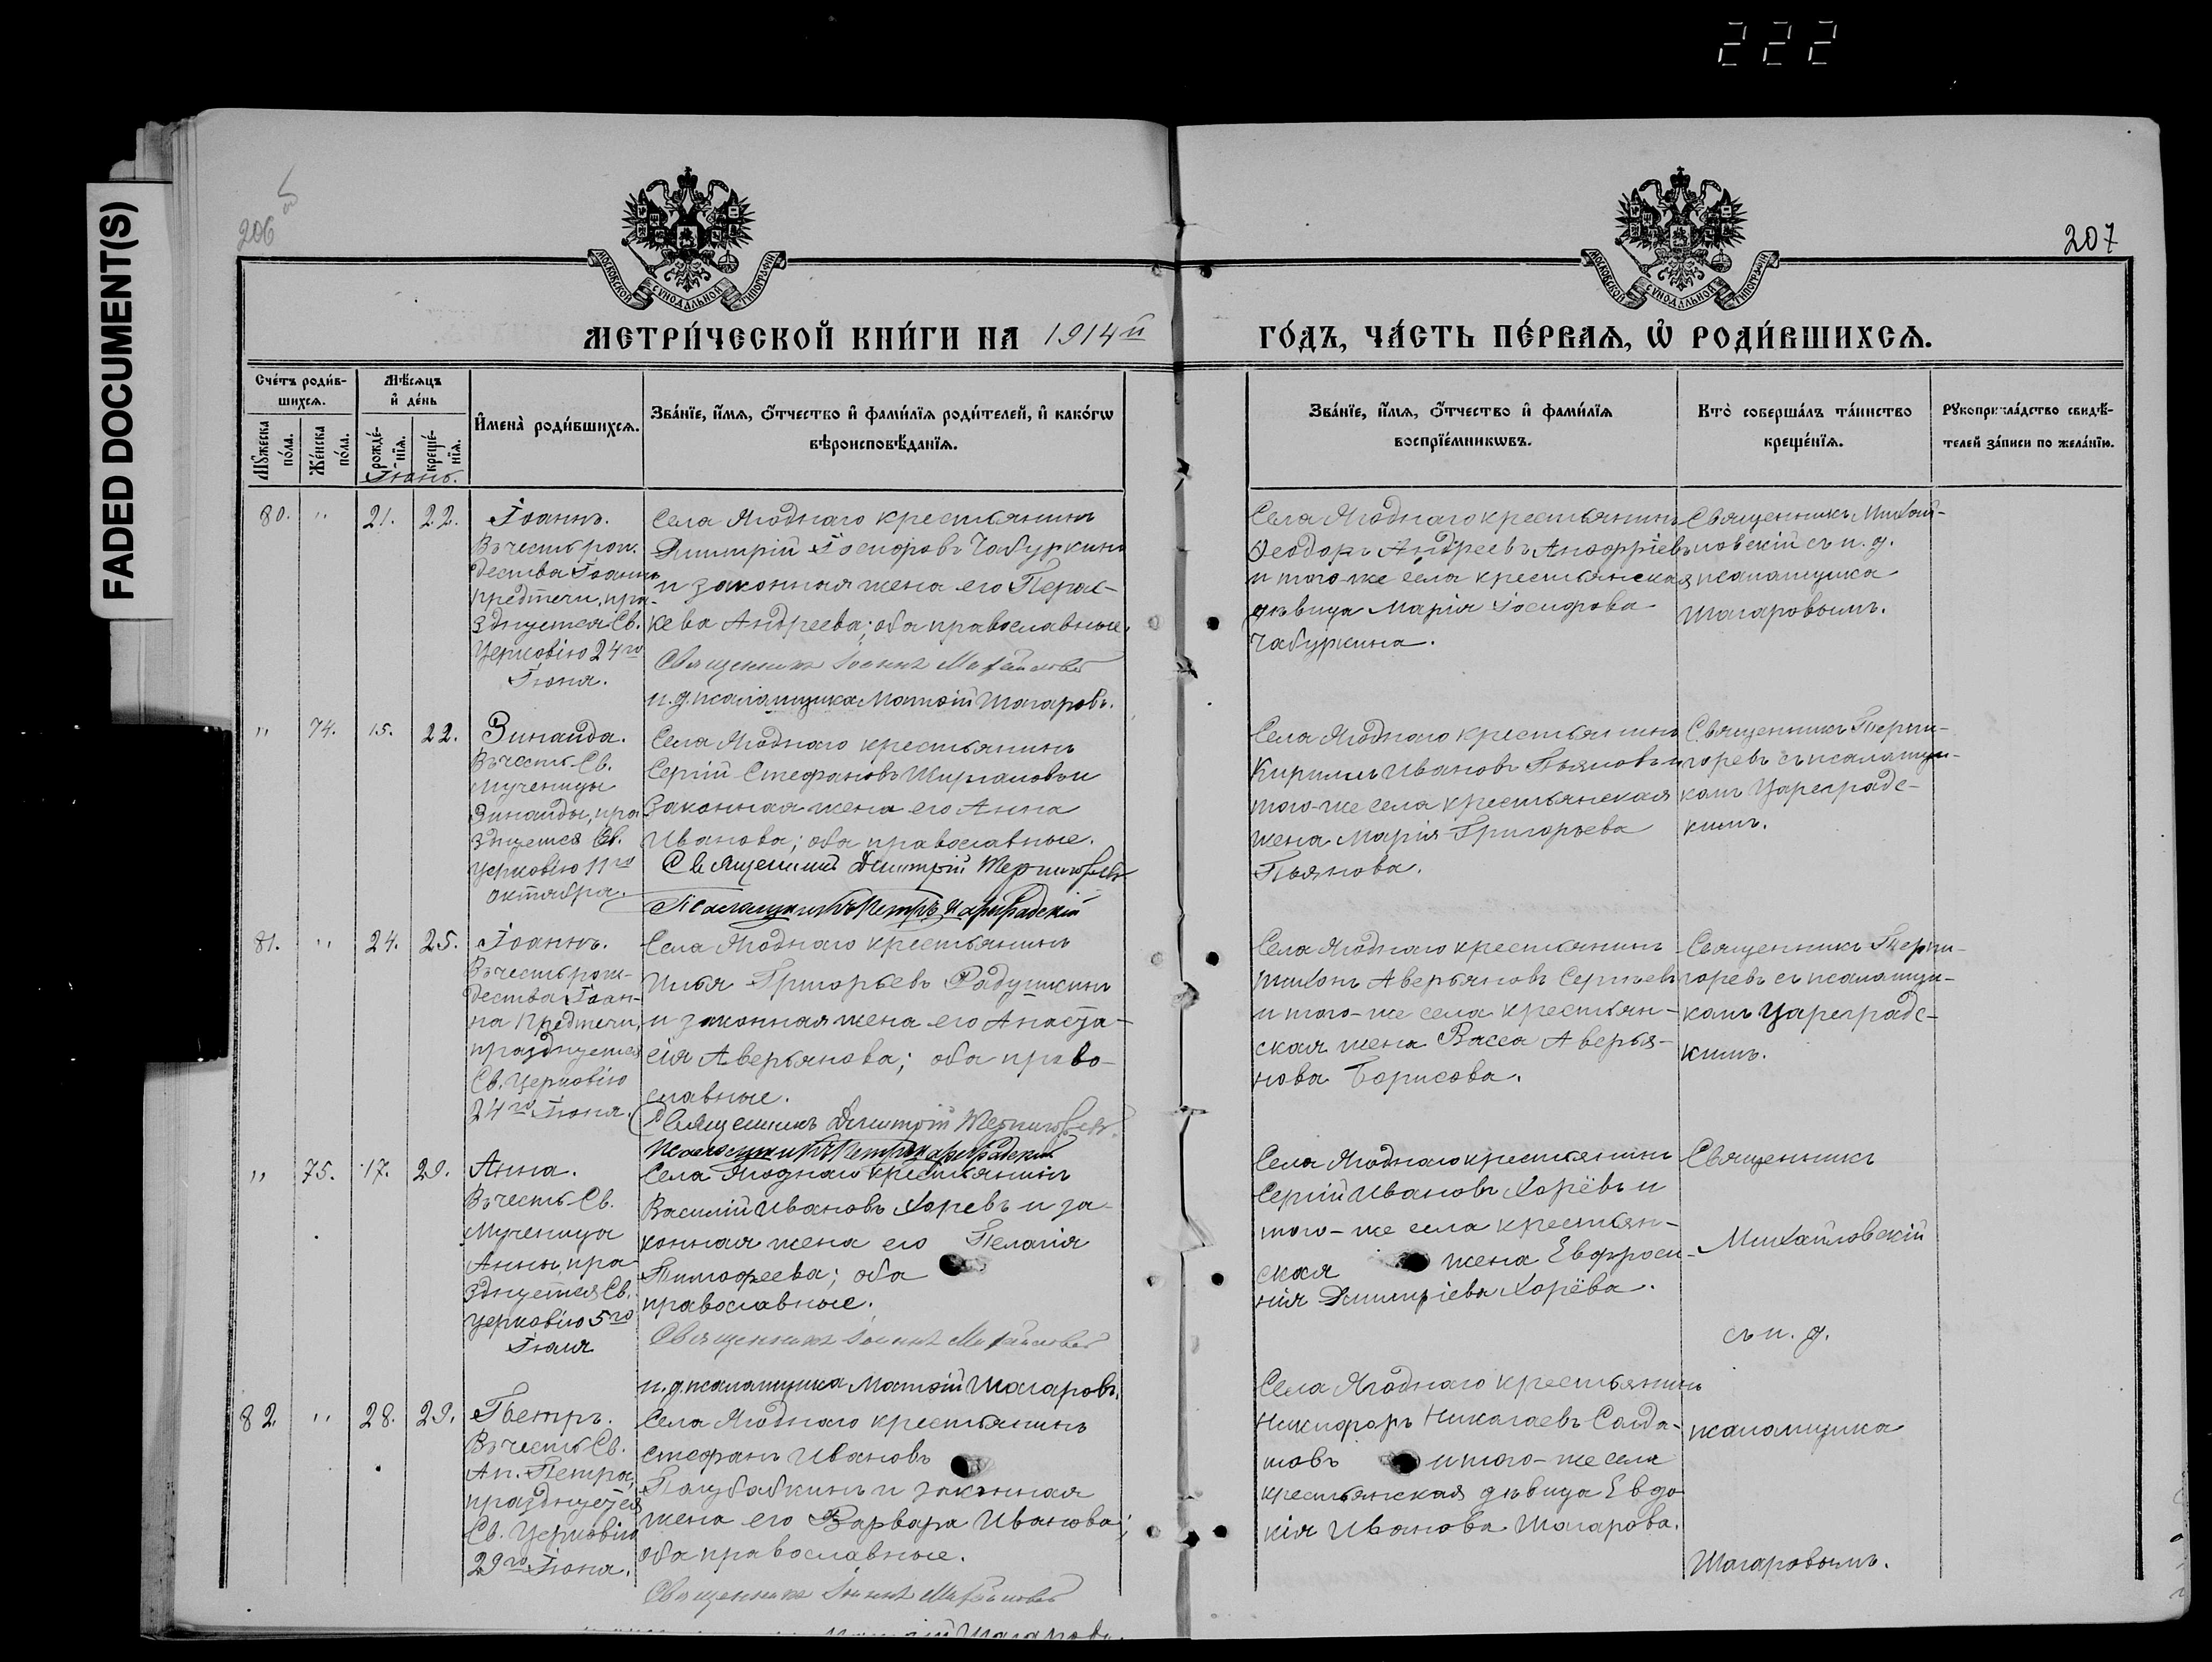 222
FADED DOCUMENT(S)
206
об
207
МОСКОВСКОЙ СѴНОДАЛЬНОЙ ТИПОГРАФІИ
МОСКОВСКОЙ СѴНОДАЛЬНОЙ ТИПОГРАФІИ
МЕТРИ́ЧЕСКОЙ КНИ́ГИ НА 1914й
ГО́ДЪ, ЧА́СТЬ ПЕ́РВАѦ, Ѿ РОДИ́ВШИХСѦ.
Сче́тъ роди́в-
шихсѧ.
Мꙋ́жеска по́ла.
Же́нска по́ла.
Мѣ́сѧцъ
и҆ де́нь
рожде́-
нїѧ.
креще́-
нїѧ.
Іюнь.
И҆мена̀ роди́вшихсѧ.
Зва́нїе, и҆́мѧ, ѻ҆́тчество и҆ фами́лїѧ роди́телей, и҆ како́гѡ
вѣроисповѣ́данїѧ.
Зва́нїе, и҆́мѧ, ѻ҆́тчество и҆ фами́лїѧ
воспрїе́мникѡвъ.
Кто̀ соверша́лъ та́инство
креще́нїѧ.
Рꙋкоприкла́дство свидѣ́-
телей за́писи по жела́нїю.
80. " 21. 22.
Іоаннъ.
Въ честь рож-
дества Іоанна
Предтечи, пра-
зднуется Св.
Церковію 24го
Іюня.
Села Ягоднаго крестьянинъ
Димитрій Іосифовъ Чабуркинъ
и законная жена его Парас-
кева Андреева; оба православные.
Священникъ Іоаннъ Михайловскій
и. д. псаломщика Матѳій Шагаровъ.
Села Ягоднаго крестьянинъ
Ѳеодоръ Андреевъ Анофріевъ
и того-же села крестьянская
дѣвица Марія Іосифова
Чабуркина.
Священникъ Михай-
ловскій съ и. д.
псаломщика
Шагаровымъ.
" 74. 15. 22.
Зинаида.
Въ честь Св.
мученицы
Зинаиды, пра-
зднуется Св.
Церковію 11го
октября.
Села Ягоднаго крестьянинъ
Сергій Стефановъ и
законная жена его Анна
Иванова; оба православные.
Священникъ Димитрій Терпигоревъ
Псаломщикъ Петръ Цареградскій
Села Ягоднаго крестьянинъ
Кириллъ Ивановъ Пьяновъ и
того-же села крестьянская
жена Марія Григорьева
Пьянова.
Священникъ Терпи-
горевъ съ псаломщи-
комъ Цареградс-
кимъ.
81. " 24. 25.
Іоаннъ.
Въ честь рож-
дества Іоан-
на Предтечи,
празднуется
Св. Церковію
24го Іюня.
Села Ягоднаго крестьянинъ
Илья Григорьевъ Радушкинъ
и законная жена его Анаста-
сія Аверьянова; оба право-
славные.
Священникъ Димитрій Терпигоревъ
Псаломщикъ Петръ Цареградскій
Села Ягоднаго крестьянинъ
Тихонъ Аверьяновъ Сергѣевъ
и того-же села крестьян-
ская жена Васса Аверья-
нова Борисова.
Священникъ Терпи-
горевъ съ псаломщи-
комъ Цареградс-
кимъ.
" 75. 17. 29.
Анна.
Въ честь Св.
Мученицы
Анны, пра-
зднуется Св.
Церковію 5го
Іюля
Села Ягоднаго крестьянинъ
Василій Ивановъ Хоревъ и за-
конная жена его Пелагія
Тимофеева; оба
православные.
Священникъ Іоаннъ Михайловскій
и. д. псаломщика Матѳій Шагаровъ.
Села Ягоднаго крестьянинъ
Сергій Ивановъ Хорёвъ и
того-же села крестьян-
ская жена Евфроси-
нія Димитріева Хорёва.
Священникъ
Михайловскій
съ и. д.
82. " 28. 29.
Петръ.
Въ честь Св.
Ап. Петра,
празднуется
Св. Церковію
29го Іюня.
Села Ягоднаго крестьянинъ
Стефанъ Ивановъ
Полубабкинъ и законная
жена его Варвара Иванова;
оба православные.
Священникъ Іоаннъ Михайловскій
Матѳій Шагаровъ.
Села Ягоднаго крестьянинъ
Никифоръ Николаевъ Солда-
товъ и того-же села
крестьянская дѣвица Евдо-
кія Иванова Шагарова.
псаломщика
Шагаровымъ.